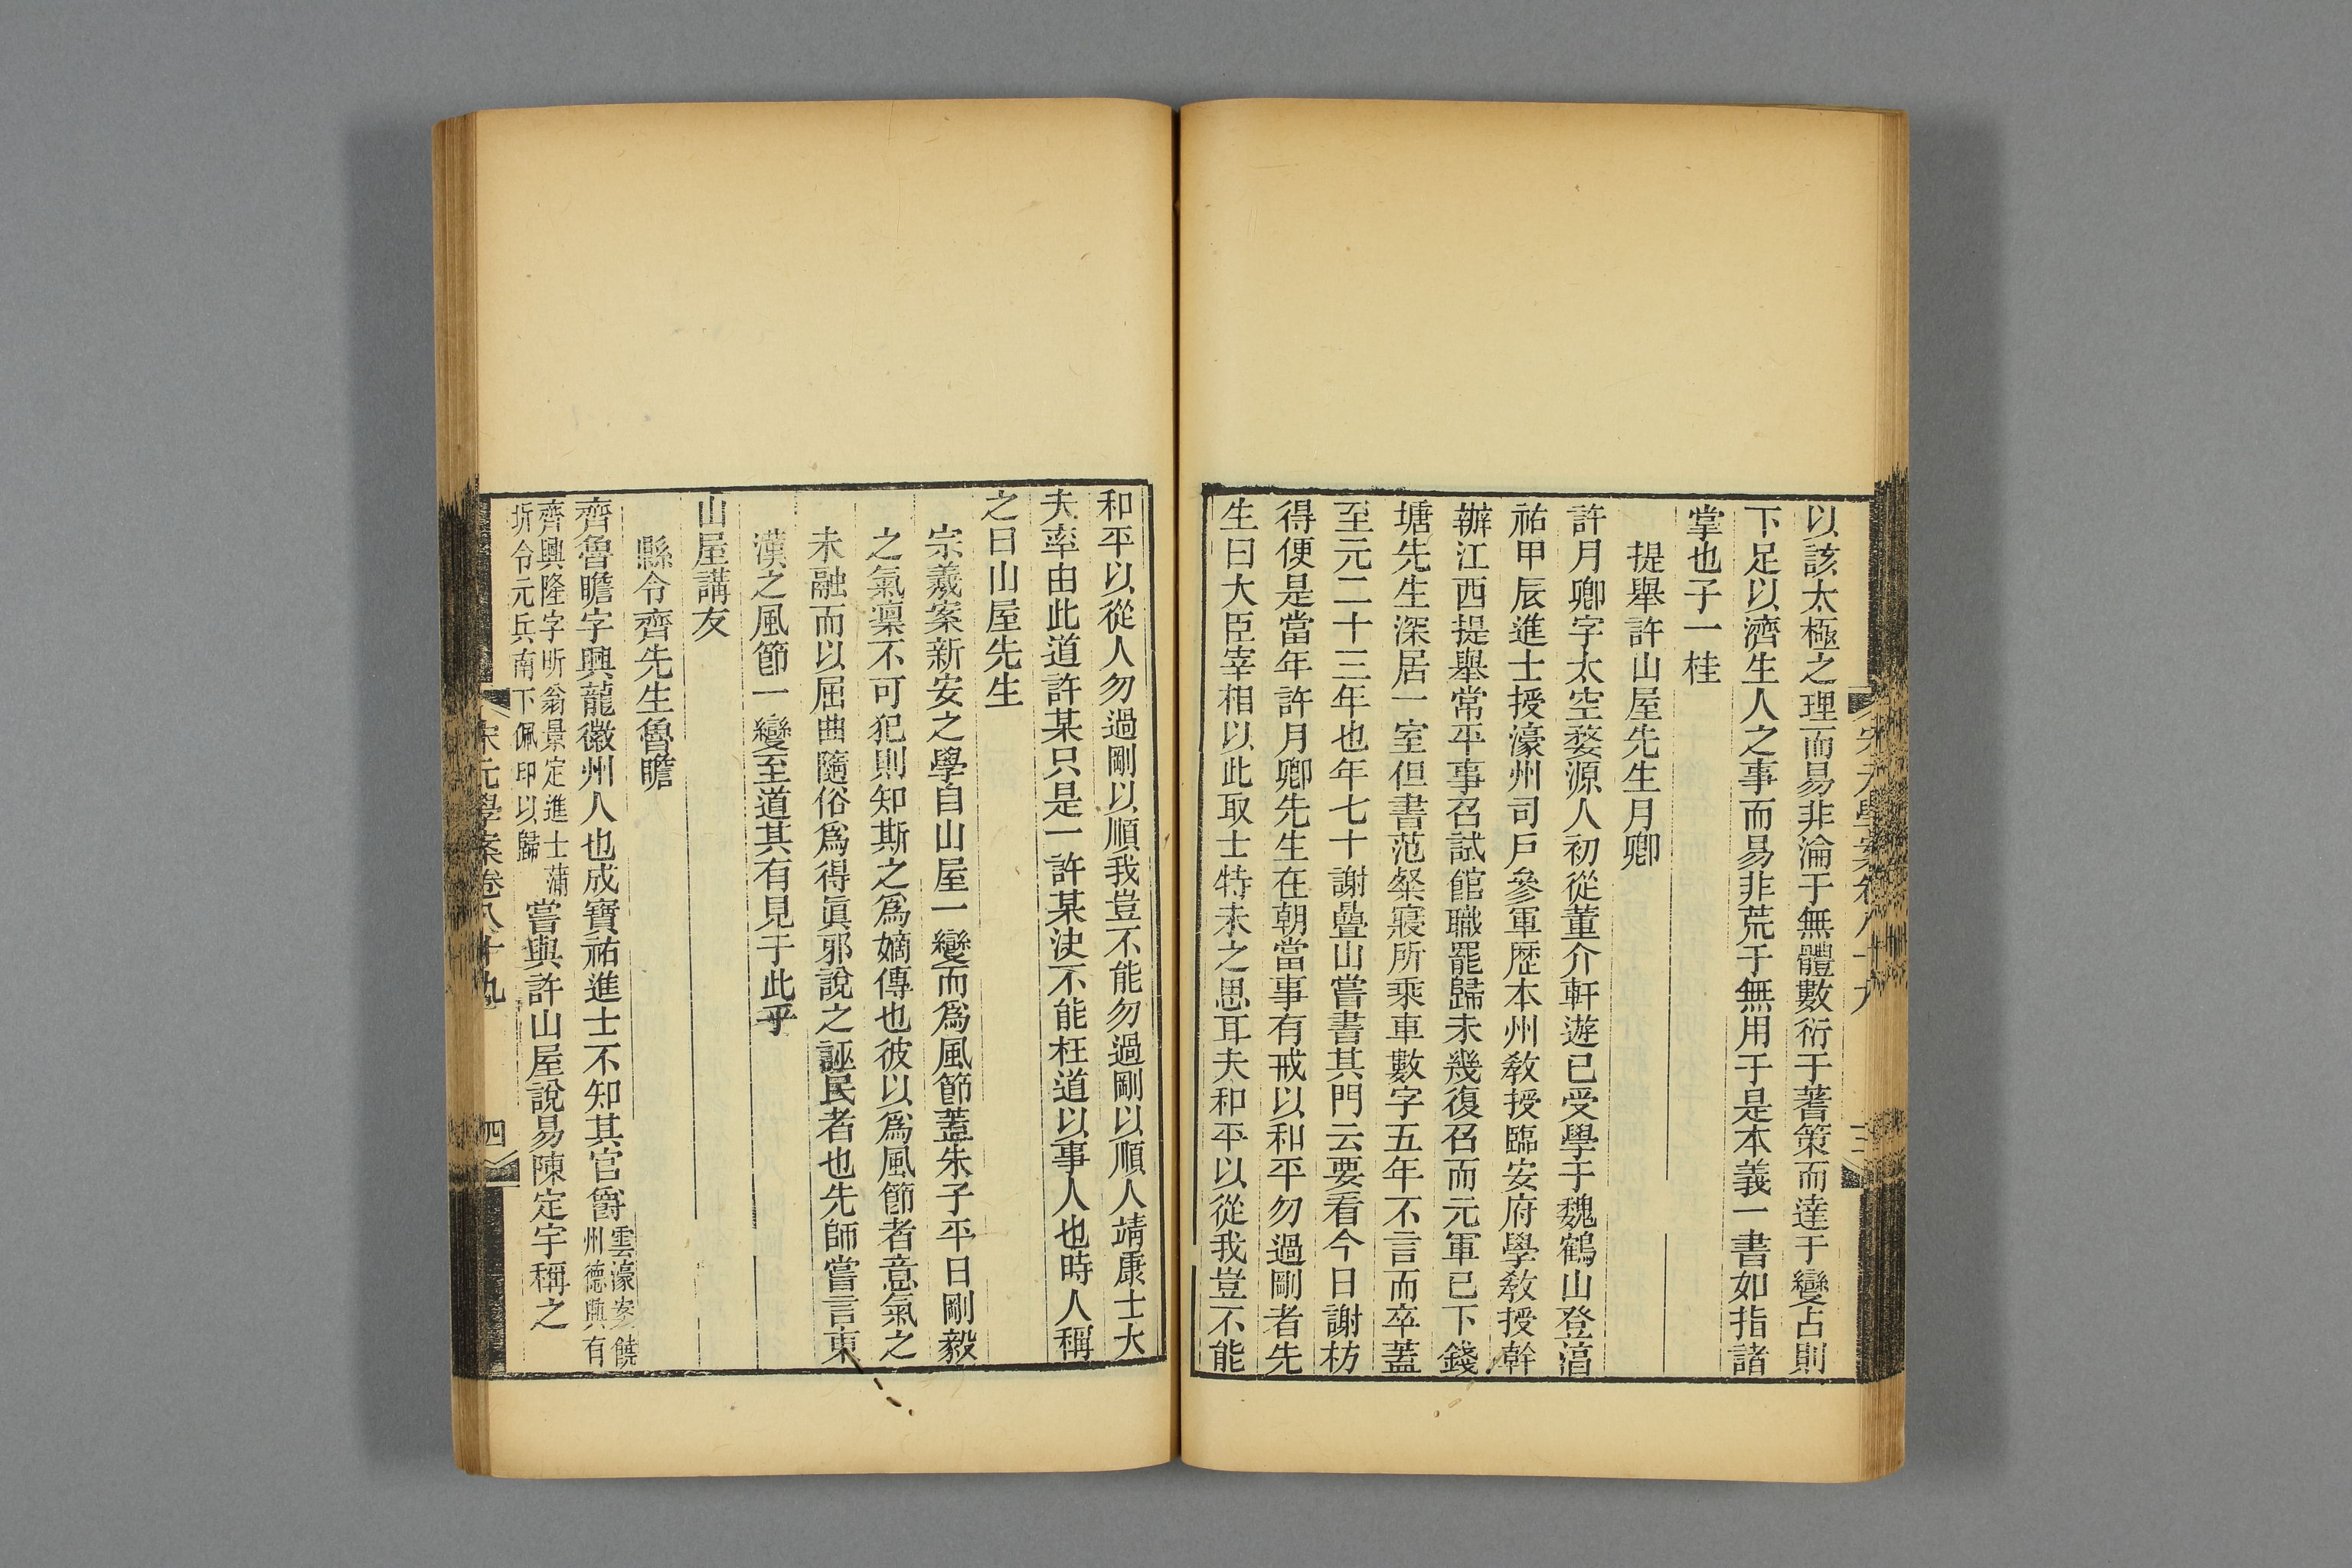 以該太極之理而易非淪于無體數衍于蓍策而達于變占則
下足以濟生人之事而易非荒于無用于是本義一書如指諸
掌也子一桂
提舉許山屋先生月卿
許月卿字太空婺源人初從董介軒遊已受學于魏鶴山登湻
祐甲辰進士授濠州司戸參軍歷本州敎授臨安府學敎授幹
辦江西提舉常平事召試館職罷歸未幾復召而元軍已下錢
塘先生深居一室但書范粲寢所乘車數字五年不言而卒蓋
至元二十三年也年七十謝疊山嘗書其門云要看今日謝枋
得便是當年許月卿先生在朝當事有戒以和平勿過剛者先
生曰大臣宰相以此取士特未之思耳夫和平以從我豈不能
和平以從人勿過剛以順我豈不能勿過剛以順人靖康士大
夫率由此道許某只是一許某決不能枉道以事人也時人稱
之曰山屋先生
宗羲案新安之學自山屋一變而爲風節蓋朱子平日剛毅
之氣凜不可犯則知斯之爲嫡傳也彼以爲風節者意氣之
未融而以屈曲隨俗爲得眞邪說之誣民者也先師嘗言東
漢之風節一變至道其有見于此乎
山屋講友
縣令齊先生魯瞻
齊魯瞻字興龍徽州人也成寶祐進士不知其官爵雲濠案饒
州德興有
齊興隆字昕翁景定進士蒲
圻令元兵南下佩印以歸
嘗與許山屋說易陳定宇稱之
宋元學案卷八十九
四